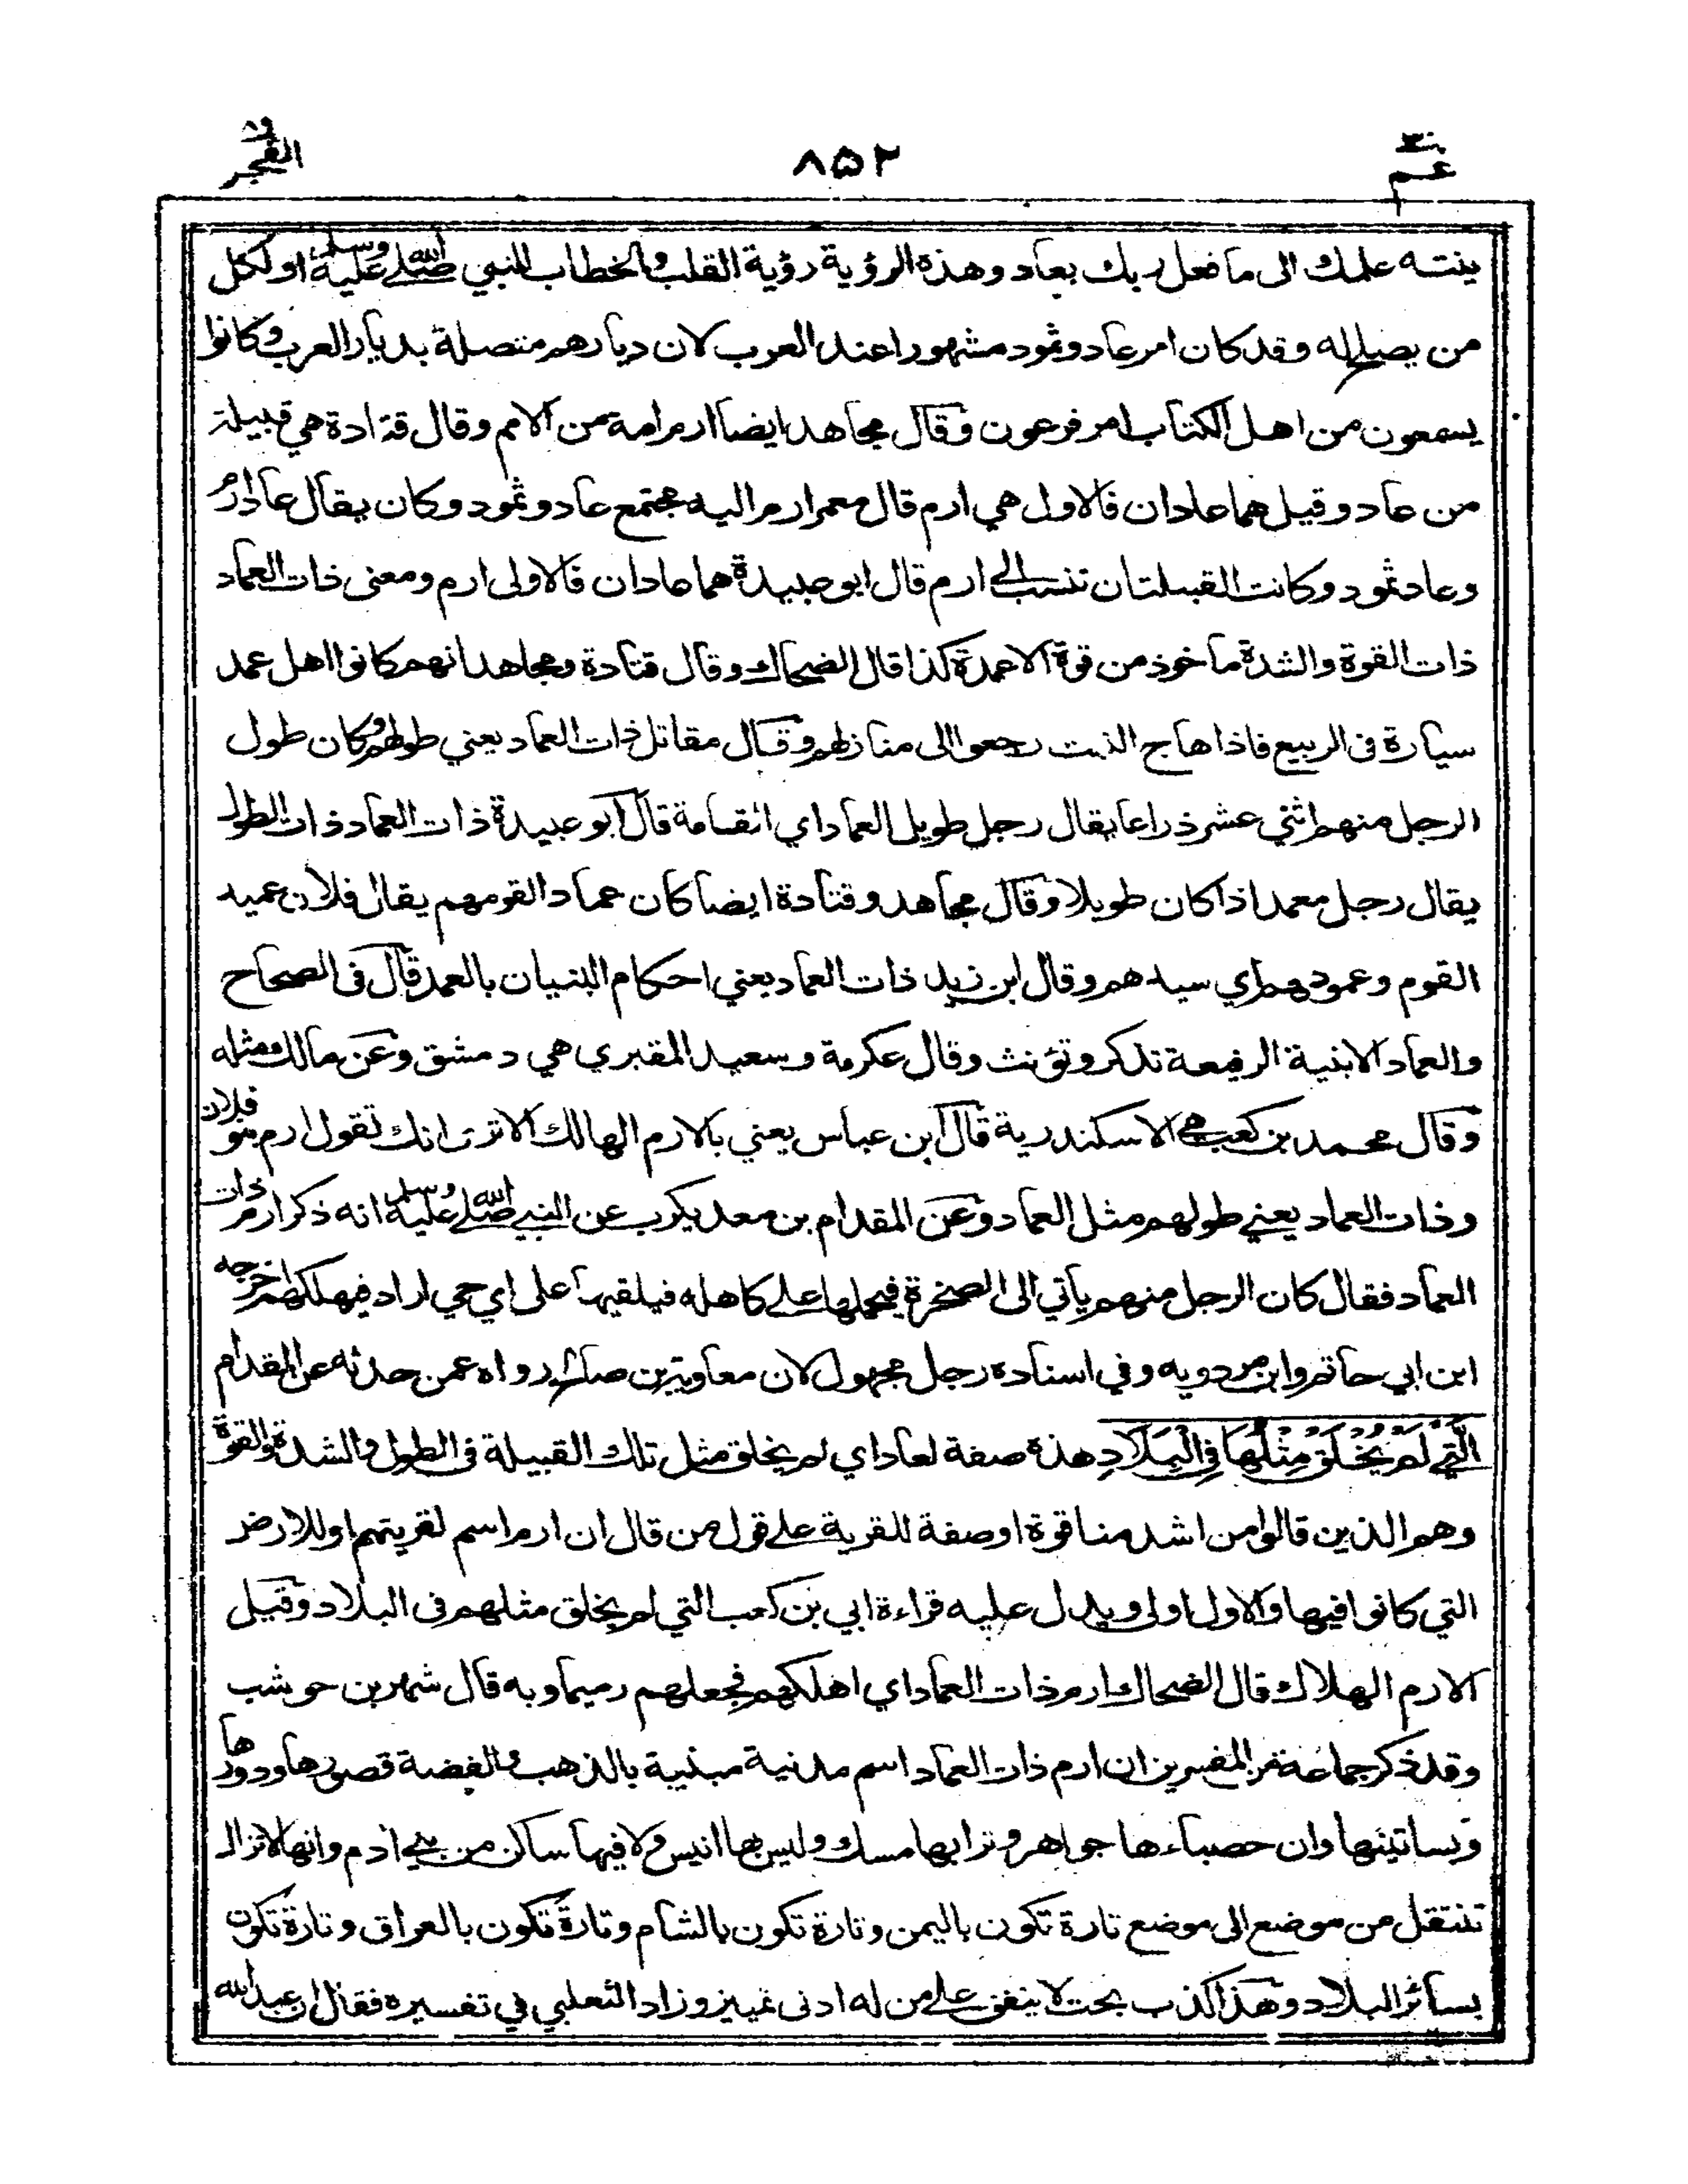 عم ٣٠
٨٥٢
الفجر ٨٩
ينته علمك الى ما فعل ربك بعاد وهذه الرؤية رؤية القلب والخطاب للنبي صلى الله عليه وسلم او لكل
من يصلح له وقد كان امر عاد وثمود مشهورا عند العرب لان ديارهم متصلة بديار العرب وكانوا
يسمعون من اهل الكتاب امر فرعون وقال مجاهد ايضا ارم امة من الامم وقال قتادة هي قبيلة
من عاد وقيل هما عادان فالاولى هي ارم قال معمر ارم اليه مجتمع عاد وثمود وكان يقال عاد ارم
وعاد ثمود وكانت القبيلتان تنسب الى ارم قال ابو عبيدة هما عادان فالاولى ارم ومعنى ذات العماد
ذات القوة والشدة ماخوذ من قوة الاعمدة كذا قال الضحاك وقال قتادة ومجاهد انهم كانوا اهل عمد
سيارة فى الربيع فاذا هاج النبت رجعوا الى منازلهم وقال مقاتل ذات العماد يعني طولهم وكان طول
الرجل منهم اثني عشر ذراعا يقال رجل طويل العماد اي القامة قال ابو عبيدة ذات العماد ذات الطول
يقال رجل معمد اذا كان طويلا وقال مجاهد وقتادة ايضا كان عمادا لقومهم يقال فلان عميد
القوم وعمودهم اي سيدهم وقال ابن زيد ذات العماد يعني احكام البنيان بالعمد قال فى الصحاح
والعماد الابنية الرفيعة تذكر وتؤنث وقال عكرمة وسعيد المقبري هي دمشق وعن مالك مثله
وقال محمد بن كعب هي الاسكندرية قال ابن عباس يعني بالارم الهالك الا ترى انك تقول ارم بنو فلان
وذات العماد يعني طولهم مثل العماد وعن المقدام بن معد يكرب عن النبي صلى الله عليه وسلم انه ذكر ارم ذات
العماد فقال كان الرجل منهم يأتي الى الصخرة فيحملها على كاهله فيلقيها على اي حي اراد فيهلكهم اخرجه
ابن ابي حاتم وابن مردويه وفي اسناده رجل مجهول لان معاوية بن صالح رواه عمن حدثه عن المقدام
الَّتِي لَمْ يُخْلَقْ مِثْلُهَا فِي الْبِلَادِ هذه صفة لعاد اي لم يخلق مثل تلك القبيلة فى الطول والشدة والقوة
وهم الذين قالوا من اشد منا قوة او صفة للقرية على قول من قال ان ارم اسم لقريتهم او للارض
التي كانوا فيها والاول اولى ويدل عليه قراءة ابي بن كعب التي لم يخلق مثلهم فى البلاد وقيل
الارم الهلاك قال الضحاك ارم ذات العماد اي اهلكهم فجعلهم رميما وبه قال شهر بن حوشب
وقد ذكر جماعة من المفسرين ان ارم ذات العماد اسم مدنية مبنية بالذهب والفضة قصورها ودورها
وبساتينها وان حصباءها جواهر وترابها مسك وليس بها انيس ولا فيها ساكن من بني اٰدم وانها لا تزال
تنتقل من موضع الى موضع تارة تكون باليمن وتارة تكون بالشام وتارة تكون بالعراق وتارة تكون
بسائر البلاد وهذا كذب بحت لا ينفق على من له ادنى تمييز وزاد الثعلبي في تفسيره فقال ان عبدالله